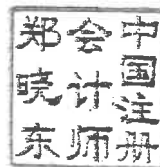 中国注册
会计师
郑晓东